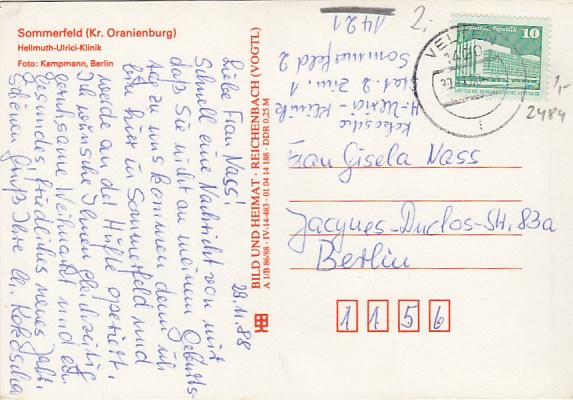 Sommerfeld (Kr. Oranienburg)
Hellmuth-Ulrici-Klinik
Foto: Kampmann, Berlin
28.11.88
Liebe Frau Nass!
Schnell eine Nachricht von mir
daß Sie nicht an meinem Geburts-
tag zu uns kommen denn ich
bin hier in Sommerfeld und
werde an der Hüfte operiert.
Ich wünsche Ihnen gleichzeitig
geruhsame Weihnacht und ein
gesundes friedliches neues Jahr.
Schönen Gruß Ihre Ch. Kokoscha
BILD UND HEIMAT · REICHENBACH (VOGTL)
A 1/B 86/88 · IV-14-483 · 01 04 14 188 · DDR 0,25 M
Kokoscha
H-Ulrici-Klinik
Stat. 2 Zim. 1
Sommerfeld 2
1421
2,-
VELTEN
1420
10
DEUTSCHE DEMOKRATISCHE REPUBLIK
1,-
2484
Frau Gisela Nass
Jacques-Duclos-Str. 83a
Berlin
1156